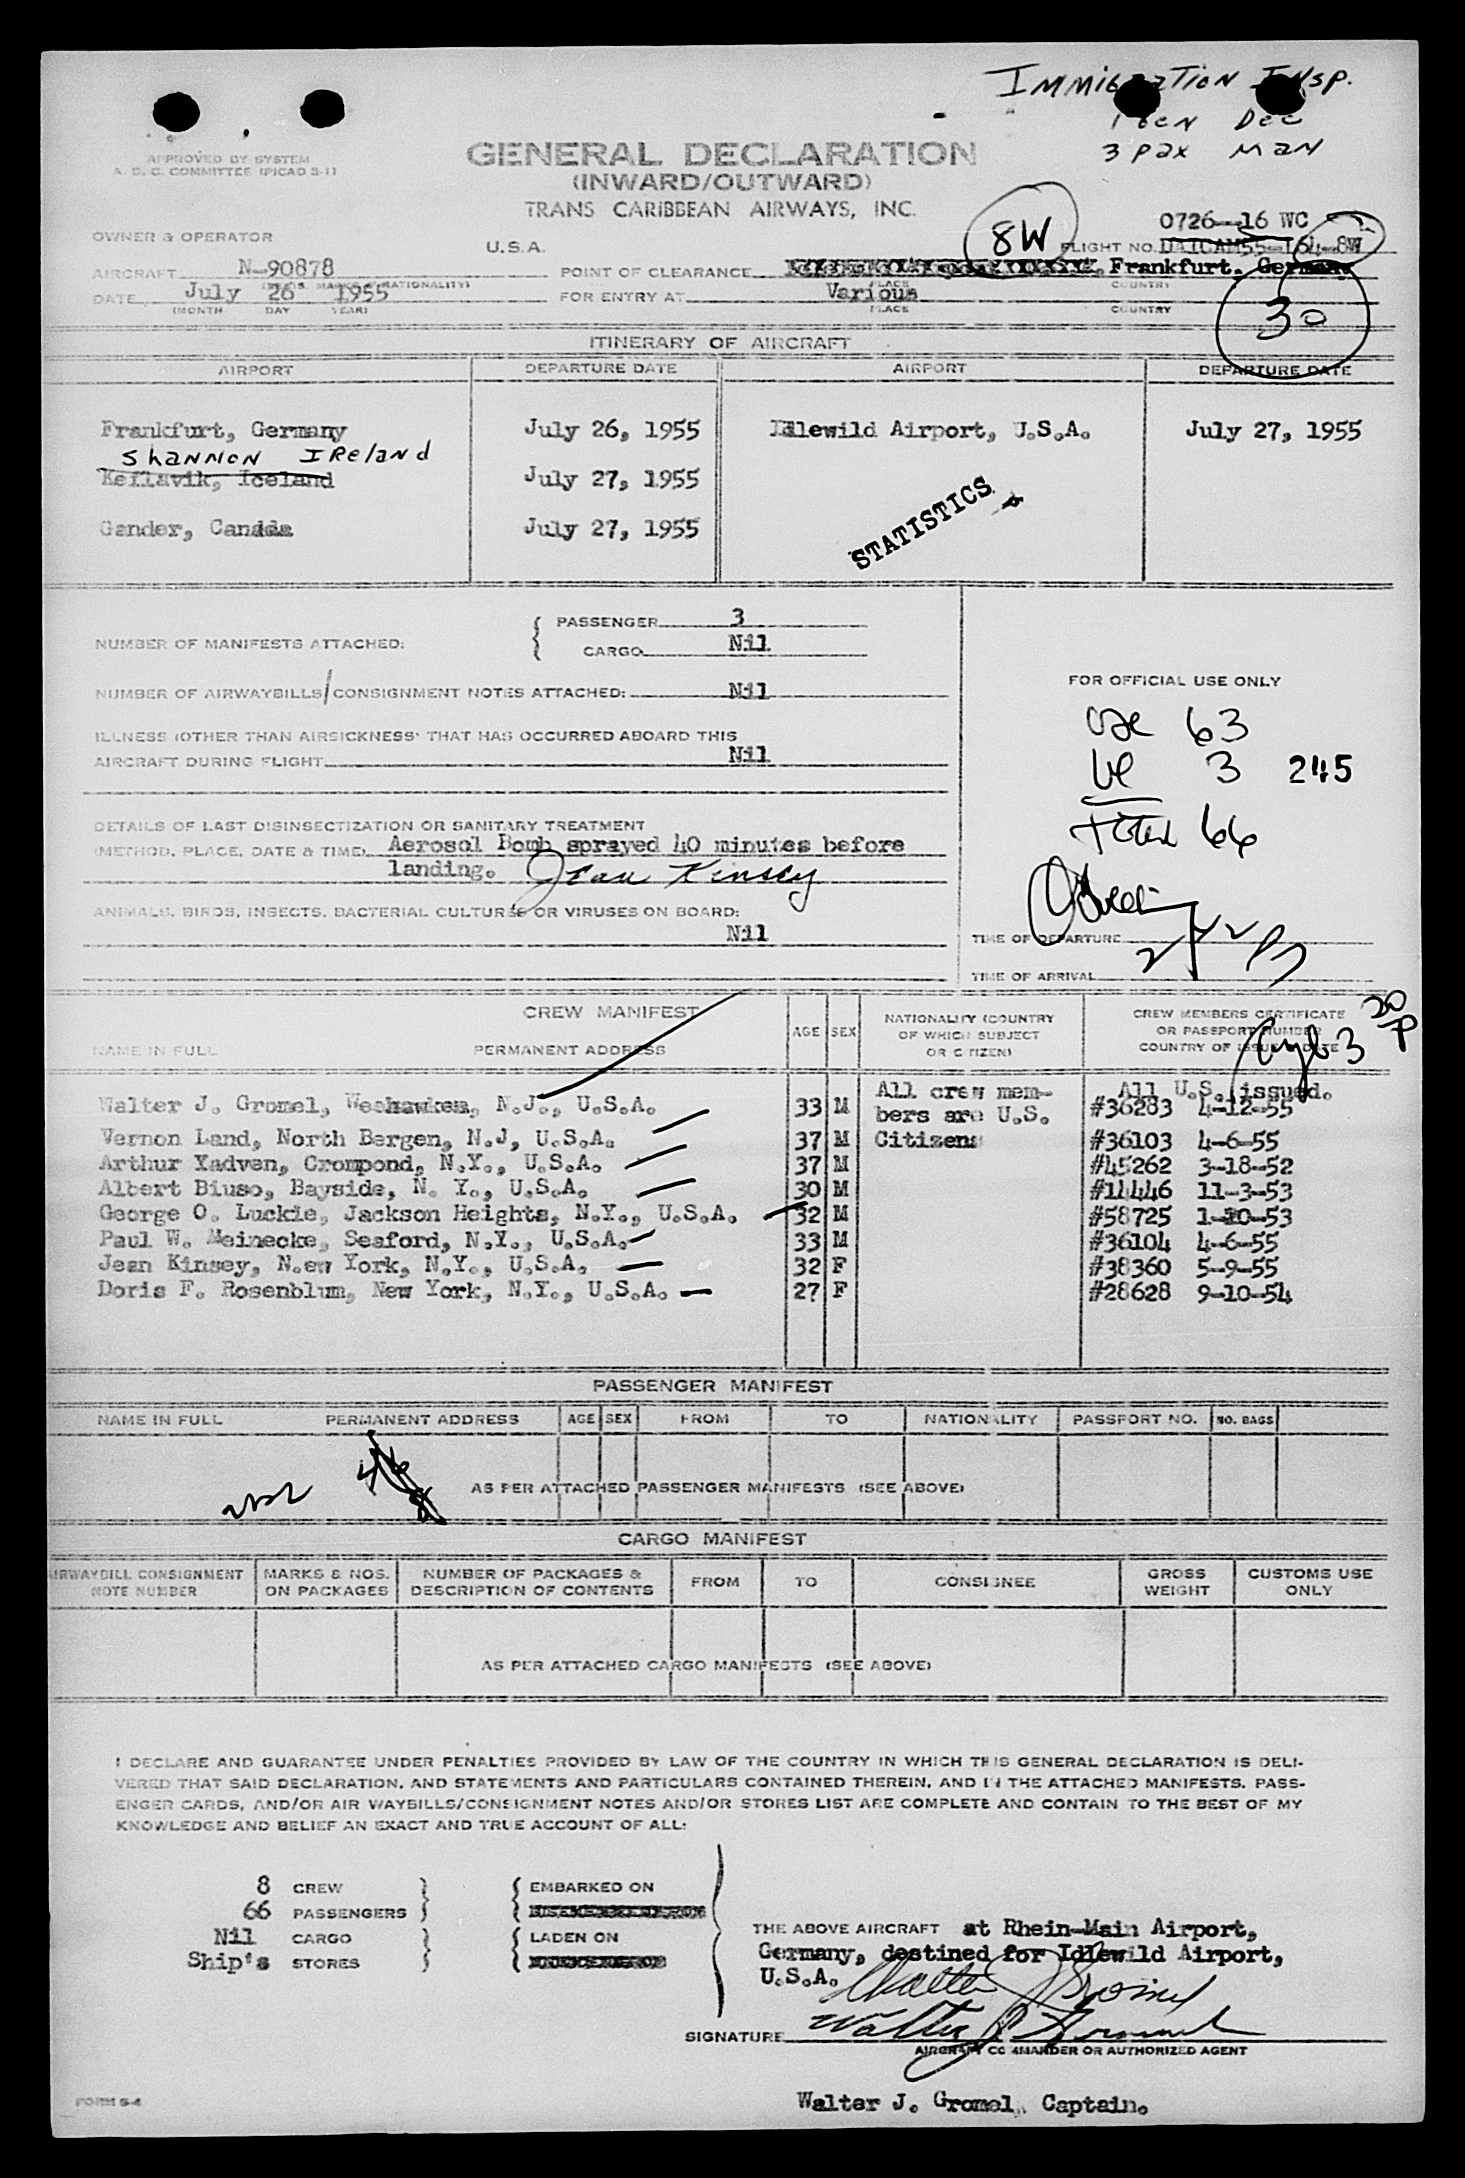 Immigration Insp.
1 Gen Dec
3 pax man
APPROVED BY SYSTEM
A. D. C. COMMITTEE (PICAO S-1)
GENERAL DECLARATION
(INWARD/OUTWARD)
TRANS CARIBBEAN AIRWAYS, INC.
8W
0726--16 WC
OWNER & OPERATOR U.S.A. FLIGHT NO.
AIRCRAFT N-90878 POINT OF CLEARANCE Frankfurt, Germany
DATE July 26 1955 FOR ENTRY AT Various
(MONTH DAY YEAR) PLACE COUNTRY
30
ITINERARY OF AIRCRAFT
AIRPORT DEPARTURE DATE AIRPORT DEPARTURE DATE
Frankfurt, Germany July 26, 1955 Idlewild Airport, U.S.A. July 27, 1955
Shannon Ireland
Keflavik, Iceland July 27, 1955
STATISTICS
Gander, Canada July 27, 1955
NUMBER OF MANIFESTS ATTACHED: PASSENGER 3
CARGO Nil
NUMBER OF AIRWAYBILLS/CONSIGNMENT NOTES ATTACHED: Nil
ILLNESS (OTHER THAN AIRSICKNESS) THAT HAS OCCURRED ABOARD THIS
AIRCRAFT DURING FLIGHT Nil
DETAILS OF LAST DISINSECTIZATION OR SANITARY TREATMENT
(METHOD, PLACE, DATE & TIME) Aerosol Bomb sprayed 40 minutes before
landing. Jean Kinsey
ANIMALS, BIRDS, INSECTS, BACTERIAL CULTURES OR VIRUSES ON BOARD:
Nil
FOR OFFICIAL USE ONLY
63
3 245
Total 66
TIME OF DEPARTURE
TIME OF ARRIVAL
CREW MANIFEST
NAME IN FULL PERMANENT ADDRESS AGE SEX NATIONALITY (COUNTRY OF WHICH SUBJECT OR CITIZEN) CREW MEMBERS CERTIFICATE OR PASSPORT NUMBER COUNTRY OF ISSUE & DATE
All crew mem- All U.S. issued.
Walter J. Gromel, Weehawken, N.J., U.S.A. 33 M bers are U.S. #36283 4-12-55
Vernon Land, North Bergen, N.J, U.S.A. 37 M Citizens #36103 4-6-55
Arthur Yadven, Crompond, N.Y., U.S.A. 37 M #45262 3-18-52
Albert Biuso, Bayside, N. Y., U.S.A. 30 M #14446 11-3-53
George O. Luckie, Jackson Heights, N.Y., U.S.A. 32 M #58725 1-20-53
Paul W. Meinecke, Seaford, N.Y., U.S.A. 33 M #36104 4-6-55
Jean Kinsey, N.ew York, N.Y., U.S.A. 32 F #38360 5-9-55
Doris F. Rosenblum, New York, N.Y., U.S.A. 27 F #28628 9-10-54
PASSENGER MANIFEST
NAME IN FULL PERMANENT ADDRESS AGE SEX FROM TO NATIONALITY PASSPORT NO. NO. BAGS
AS PER ATTACHED PASSENGER MANIFESTS (SEE ABOVE)
CARGO MANIFEST
AIRWAYBILL CONSIGNMENT NOTE NUMBER MARKS & NOS. ON PACKAGES NUMBER OF PACKAGES & DESCRIPTION OF CONTENTS FROM TO CONSIGNEE GROSS WEIGHT CUSTOMS USE ONLY
AS PER ATTACHED CARGO MANIFESTS (SEE ABOVE)
I DECLARE AND GUARANTEE UNDER PENALTIES PROVIDED BY LAW OF THE COUNTRY IN WHICH THIS GENERAL DECLARATION IS DELI-
VERED THAT SAID DECLARATION, AND STATEMENTS AND PARTICULARS CONTAINED THEREIN, AND IN THE ATTACHED MANIFESTS, PASS-
ENGER CARDS, AND/OR AIR WAYBILLS/CONSIGNMENT NOTES AND/OR STORES LIST ARE COMPLETE AND CONTAIN TO THE BEST OF MY
KNOWLEDGE AND BELIEF AN EXACT AND TRUE ACCOUNT OF ALL:
8 CREW EMBARKED ON
66 PASSENGERS
Nil CARGO LADEN ON
Ship's STORES
THE ABOVE AIRCRAFT at Rhein-Main Airport,
Germany, destined for Idlewild Airport,
U.S.A.
Walter J Gromel
SIGNATURE Walter J Gromel
AIRCRAFT COMMANDER OR AUTHORIZED AGENT
FORM S-4
Walter J. Gromel, Captain.